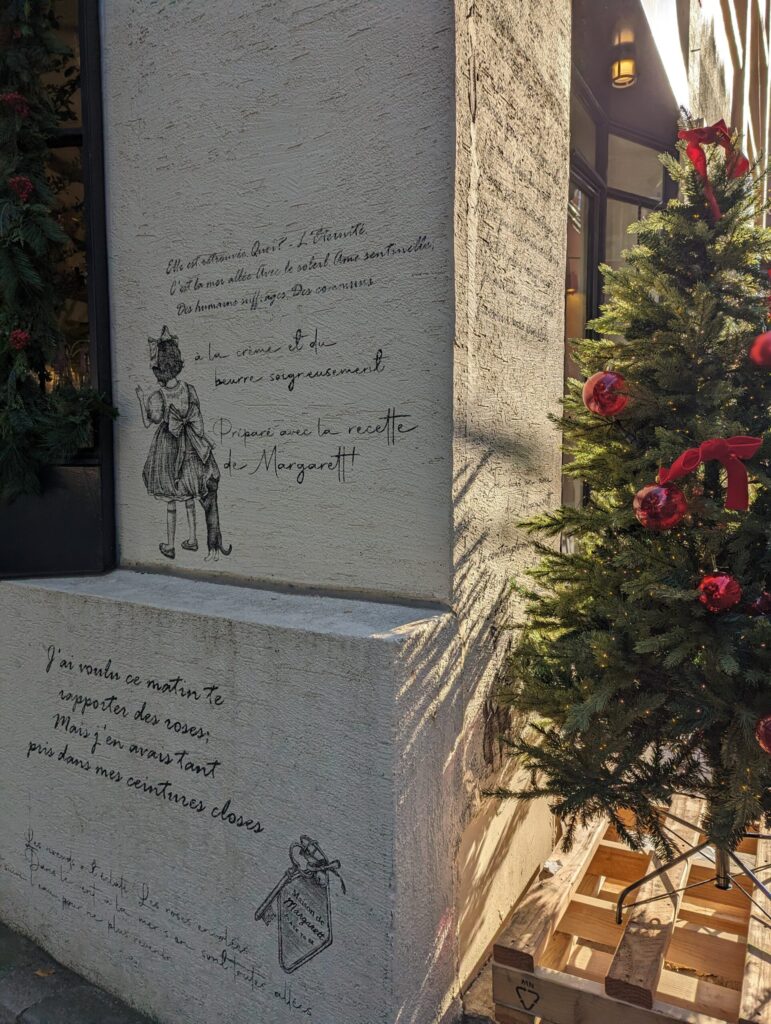 Elle est retrouvée. Quoi? - L'Éternité.
C'est la mer allée Avec le soleil. Âme sentinelle,
Des humains suffrages, Des communs
à la crème et du
beurre soigneusement
Préparé avec la recette
de Margarett!
J'ai voulu ce matin te
rapporter des roses;
Mais j'en avais tant
pris dans mes ceintures closes
Les nœuds ont éclaté. Les roses envolées
Dans le vent, à la mer s'en sont toutes allées
l'eau pour ne plus revenir
Maison de
Margarett
MN